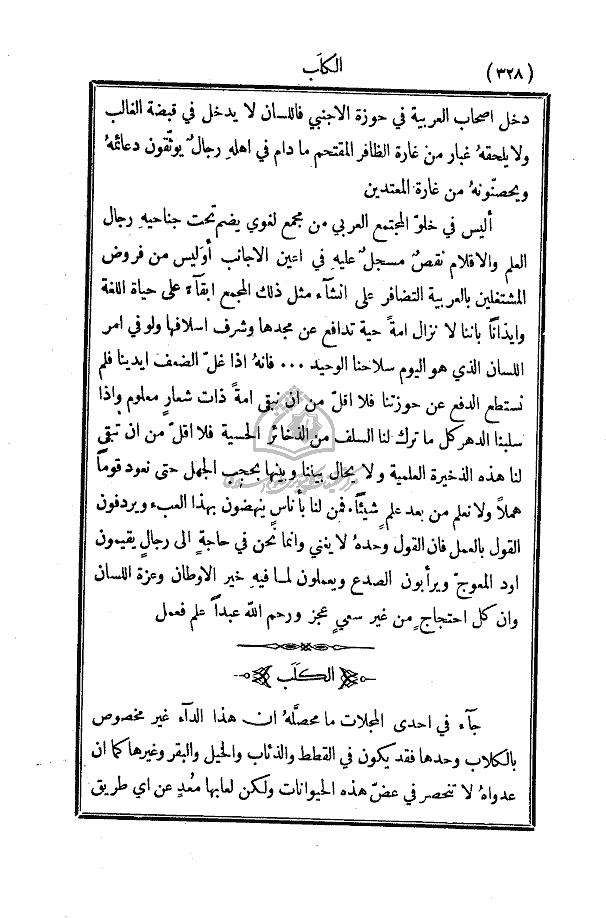 (٣٢٨)
الكلَب
دخل اصحاب العربية في حوزة الاجنبي فاللسان لا يدخل في قبضة الغالب
ولا يلحقهُ غبار من غارة الظافر المقتحم ما دام في اهلهِ رجالٌ يوثّقون دعائمهُ
ويحصنّونهُ من غارة المعتدين
أليس في خلوّ المجتمع العربي من مجمع لغوي يضم تحت جناحيهِ رجال
العلم والاقلام نقصٌ مسجلٌ عليهِ في اعين الاجانب أوليس من فروض
المشتغلين بالعربية التضافر على انشآء مثل ذلك المجمع ابقآءً على حياة اللغة
وايذانًا باننا لا نزال امةً حية تدافع عن مجدها وشرف اسلافها ولو في امر
اللسان الذي هو اليوم سلاحنا الوحيد ... فانهُ اذا غلّ الضعف ايدينا فلم
نستطع الدفع عن حوزتنا فلا اقلّ من ان نبقى امةً ذات شعارٍ معلوم واذا
سلبنا الدهر كل ما ترك لنا السلف من الذخائر الحسية فلا اقلّ من ان تبقى
لنا هذه الذخيرة العلمية ولا يحال بيننا وبينها بحجب الجهل حتى نعود قومًا
هملًا ولا نعلم من بعد علمٍ شيئًا. فمن لنا بأناسٍ ينهضون بهذا العبء ويردفون
القول بالعمل فان القول وحدهُ لا يغني وانما نحن في حاجةٍ الى رجالٍ يقيمون
اود المعوجّ ويرأبون الصدع ويعملون لما فيهِ خير الاوطان وعزة اللسان
وان كل احتجاجٍ من غير سعيٍ عجز ورحم الله عبداً علم فعمل
الكلَب
جآء في احدى المجلات ما محصَّلهُ ان هذا الدآء غير مخصوص
بالكلاب وحدها فقد يكون في القطط والذئاب والخيل والبقر وغيرها كما ان
عدواهُ لا تنحصر في عضّ هذه الحيوانات ولكن لعابها مُعدٍ عن اي طريق